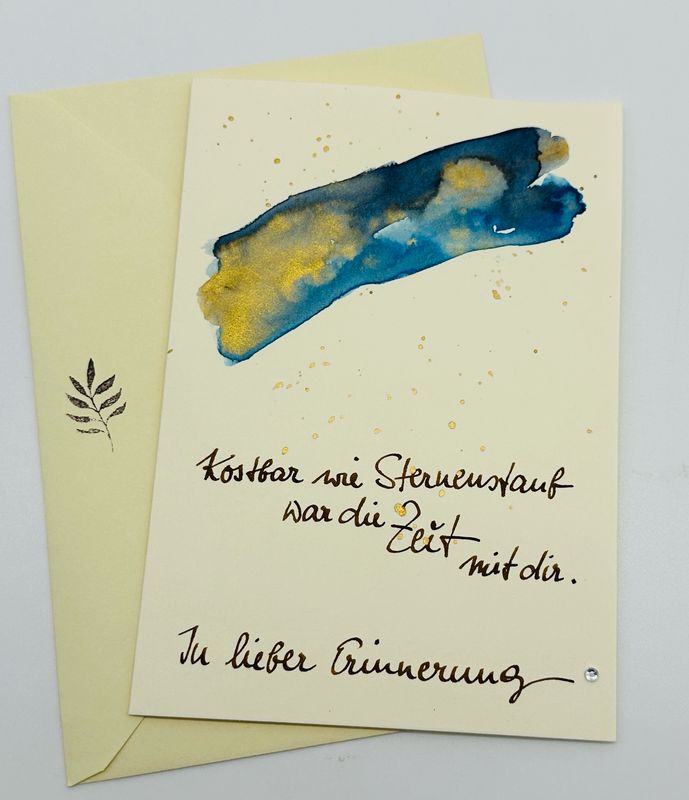 Kostbar wie Sternenstaub
war die Zeit
mit dir.
In lieber Erinnerung